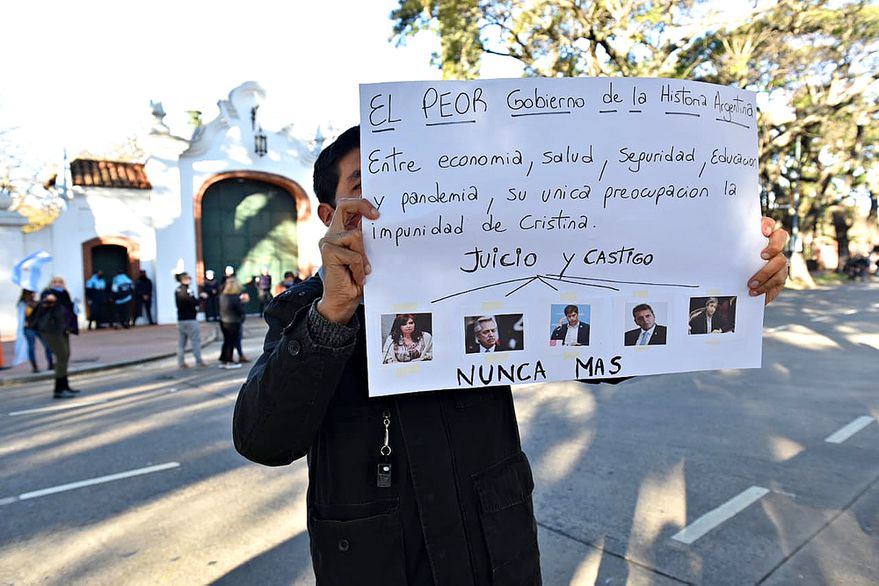 EL PEOR Gobierno de la Historia Argentina
Entre economia, salud, Seguridad, Educacion
y pandemia, su unica preocupacion la
impunidad de Cristina.
JUICIO y CASTIGO
NUNCA MAS